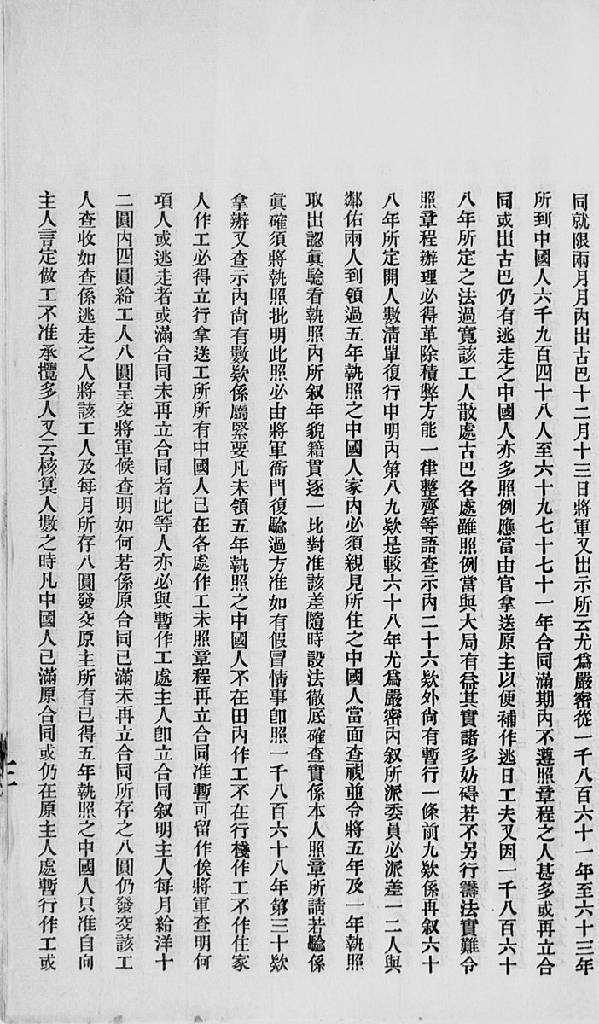 同就限兩月月內出古巴十二月十三日將軍又出示所云尤爲嚴密從一千八百六十一年至六十三年
所到中國人六千九百四十八人至六十九七十七十一年合同滿期內不遵照章程之人甚多或再立合
同或出古巴仍有逃走之中國人亦多照例應當由官拿送原主以便補作逃日工夫又因一千八百六十
八年所定之法過寬該工人散處古巴各處雖照例當與大局有益其實諸多妨碍若不另行籌法實難令
照章程辦理必得革除積弊方能一律整齊等語查示內二十六欵外尙有暫行一條前九欵係再叙六十
八年所定開人數清單復行申明內第八九欵是較六十八年尤爲嚴密內叙所派委員必派差一二人與
鄰佑兩人到領過五年執照之中國人家內必須親見所住之中國人當面查視並令將五年及一年執照
取出認眞驗看執照內所叙年貌籍貫逐一比對准該差隨時設法徹底確查實係本人照章所請若驗係
眞確須將執照批明此照必由將軍衙門復驗過方准如有假冒情事卽照一千八百六十八年第三十欵
拿辦又查示內尙有數欵係屬緊要凡未領五年執照之中國人不在田內作工不在行棧作工不作住家
人作工必得立行拿送工所所有中國人已在各處作工未照章程再立合同准暫可留作俟將軍查明何
項人或逃走者或滿合同未再立合同者此等人亦必與暫作工處主人卽立合同叙明主人每月給洋十
二圓內四圓給工人八圓呈交將軍候查明如何若係原合同已滿未再立合同所存之八圓仍發交該工
人查收如查係逃走之人將該工人及每月所存八圓發交原主所有已得五年執照之中國人只准自向
主人言定做工不准承攬多人又云核算人數之時凡中國人已滿原合同或仍在原主人處暫行作工或
三